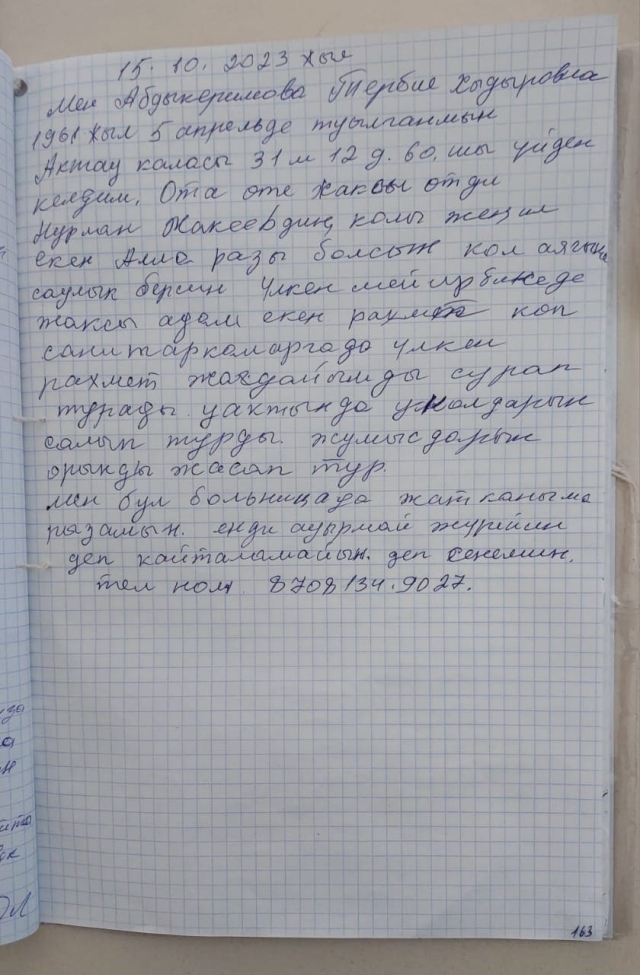 15. 10. 2023 жыл
Мен Абдыкеримова Тербие Хыдыровна
1961 жыл 5 апрельде туылганмын
Актау каласы 31 м 12 д. 60. шы уйден
келдим. Ота оте жаксы отди
Нурлан Жаксевдин, колы женил
екен Алла разы болсын кол аягына
саулык берсин Улкен мейирбикеде
жаксы адам екен рахмет коп
санитаркаларгада улкен
рахмет жагдайымды сурап
турады уактында уколдарын
салып турды. жумысдарын
орынды жасап тур.
мен бул больницада жатканыма
разамын. енди ауырмай журийин
деп кайталамайын. деп сенемин.
тел ном. 8708 134. 9027.
163